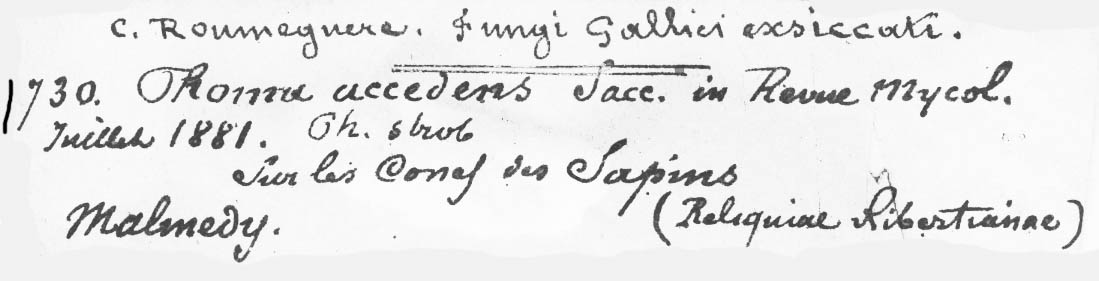 C. Roumeguere. Fungi Gallici exsiccati.
1730. Phoma accedens Sacc. in Revue Mycol.
Juillet 1881. Ph. strob
Sur les Cones des Sapins
Malmedy. (Reliquiae Libertianae)